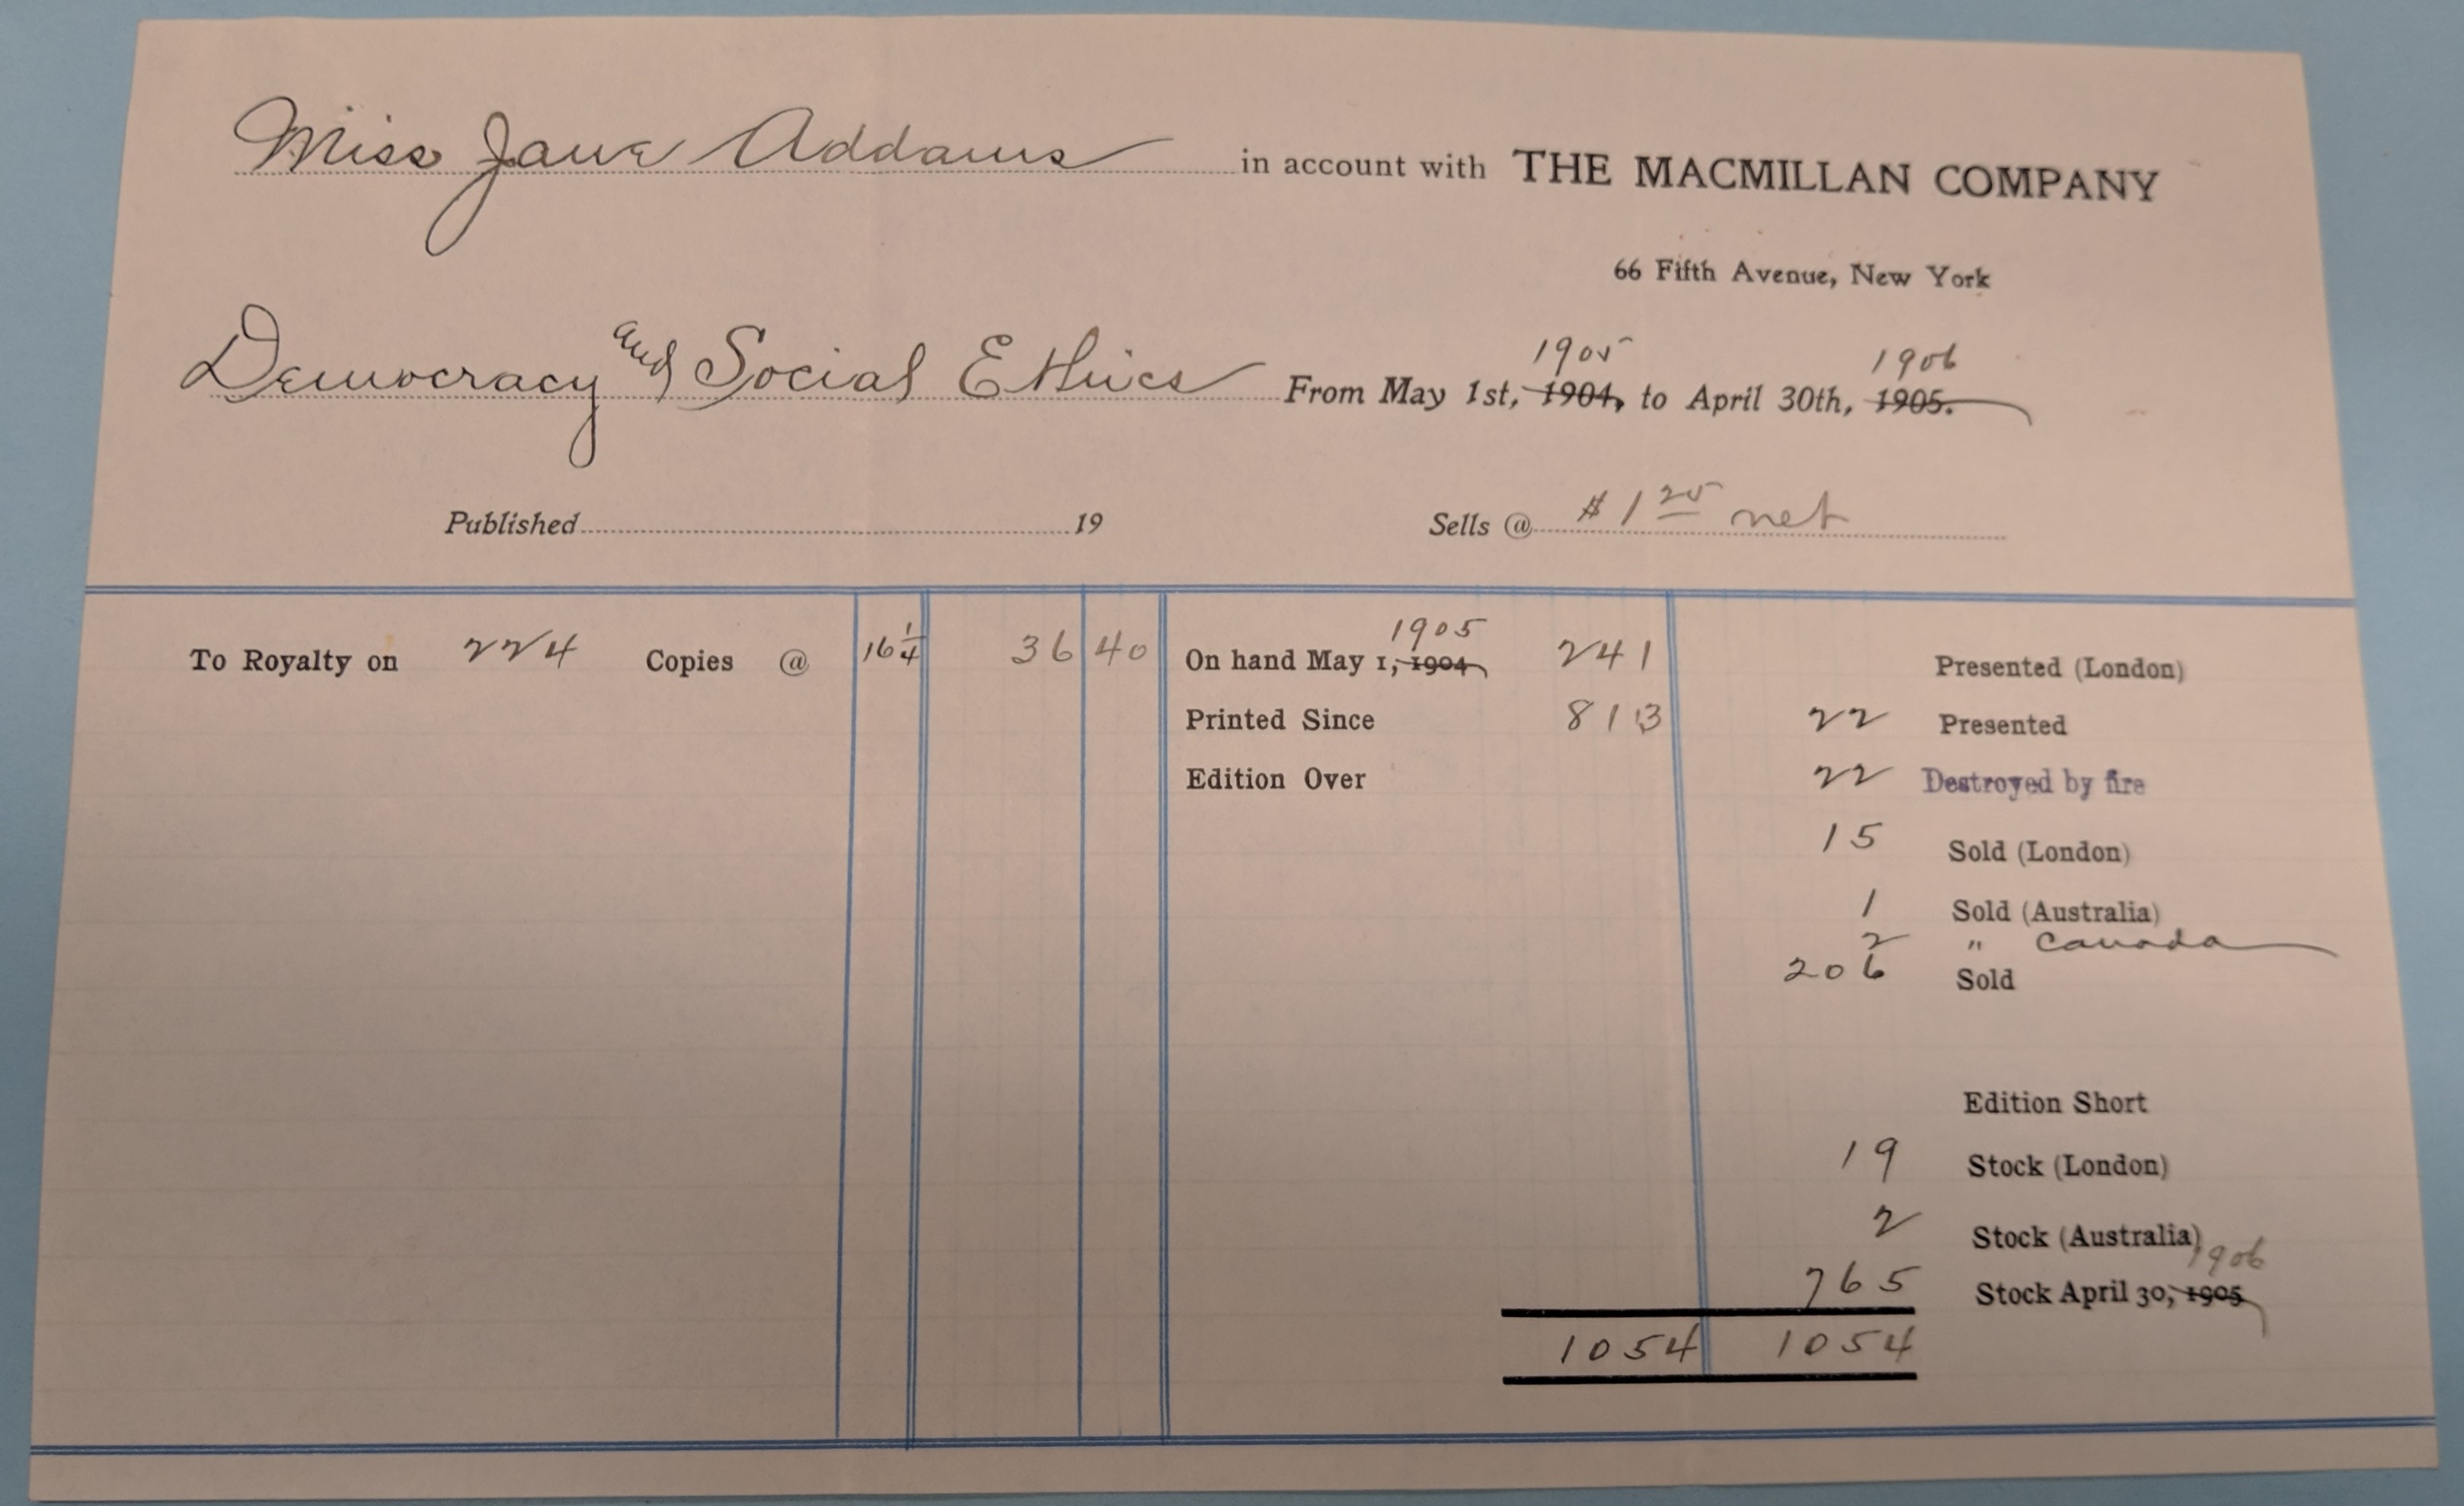 Miss Jane Addams in account with THE MACMILLAN COMPANY
66 Fifth Avenue, New York
1905 1906
Democracy and Social Ethics From May 1st, 1904, to April 30th, 1905.
Published 19 Sells @ $1 25 net
1905
To Royalty on 224 Copies @ 16 1/4 36 40 On hand May 1, 1904 241 Presented (London)
Printed Since 813 22 Presented
Edition Over 22 Destroyed by fire
15 Sold (London)
1 Sold (Australia)
2 " Canada
206 Sold
Edition Short
19 Stock (London)
2 Stock (Australia)
1906
765 Stock April 30, 1905
1054 1054